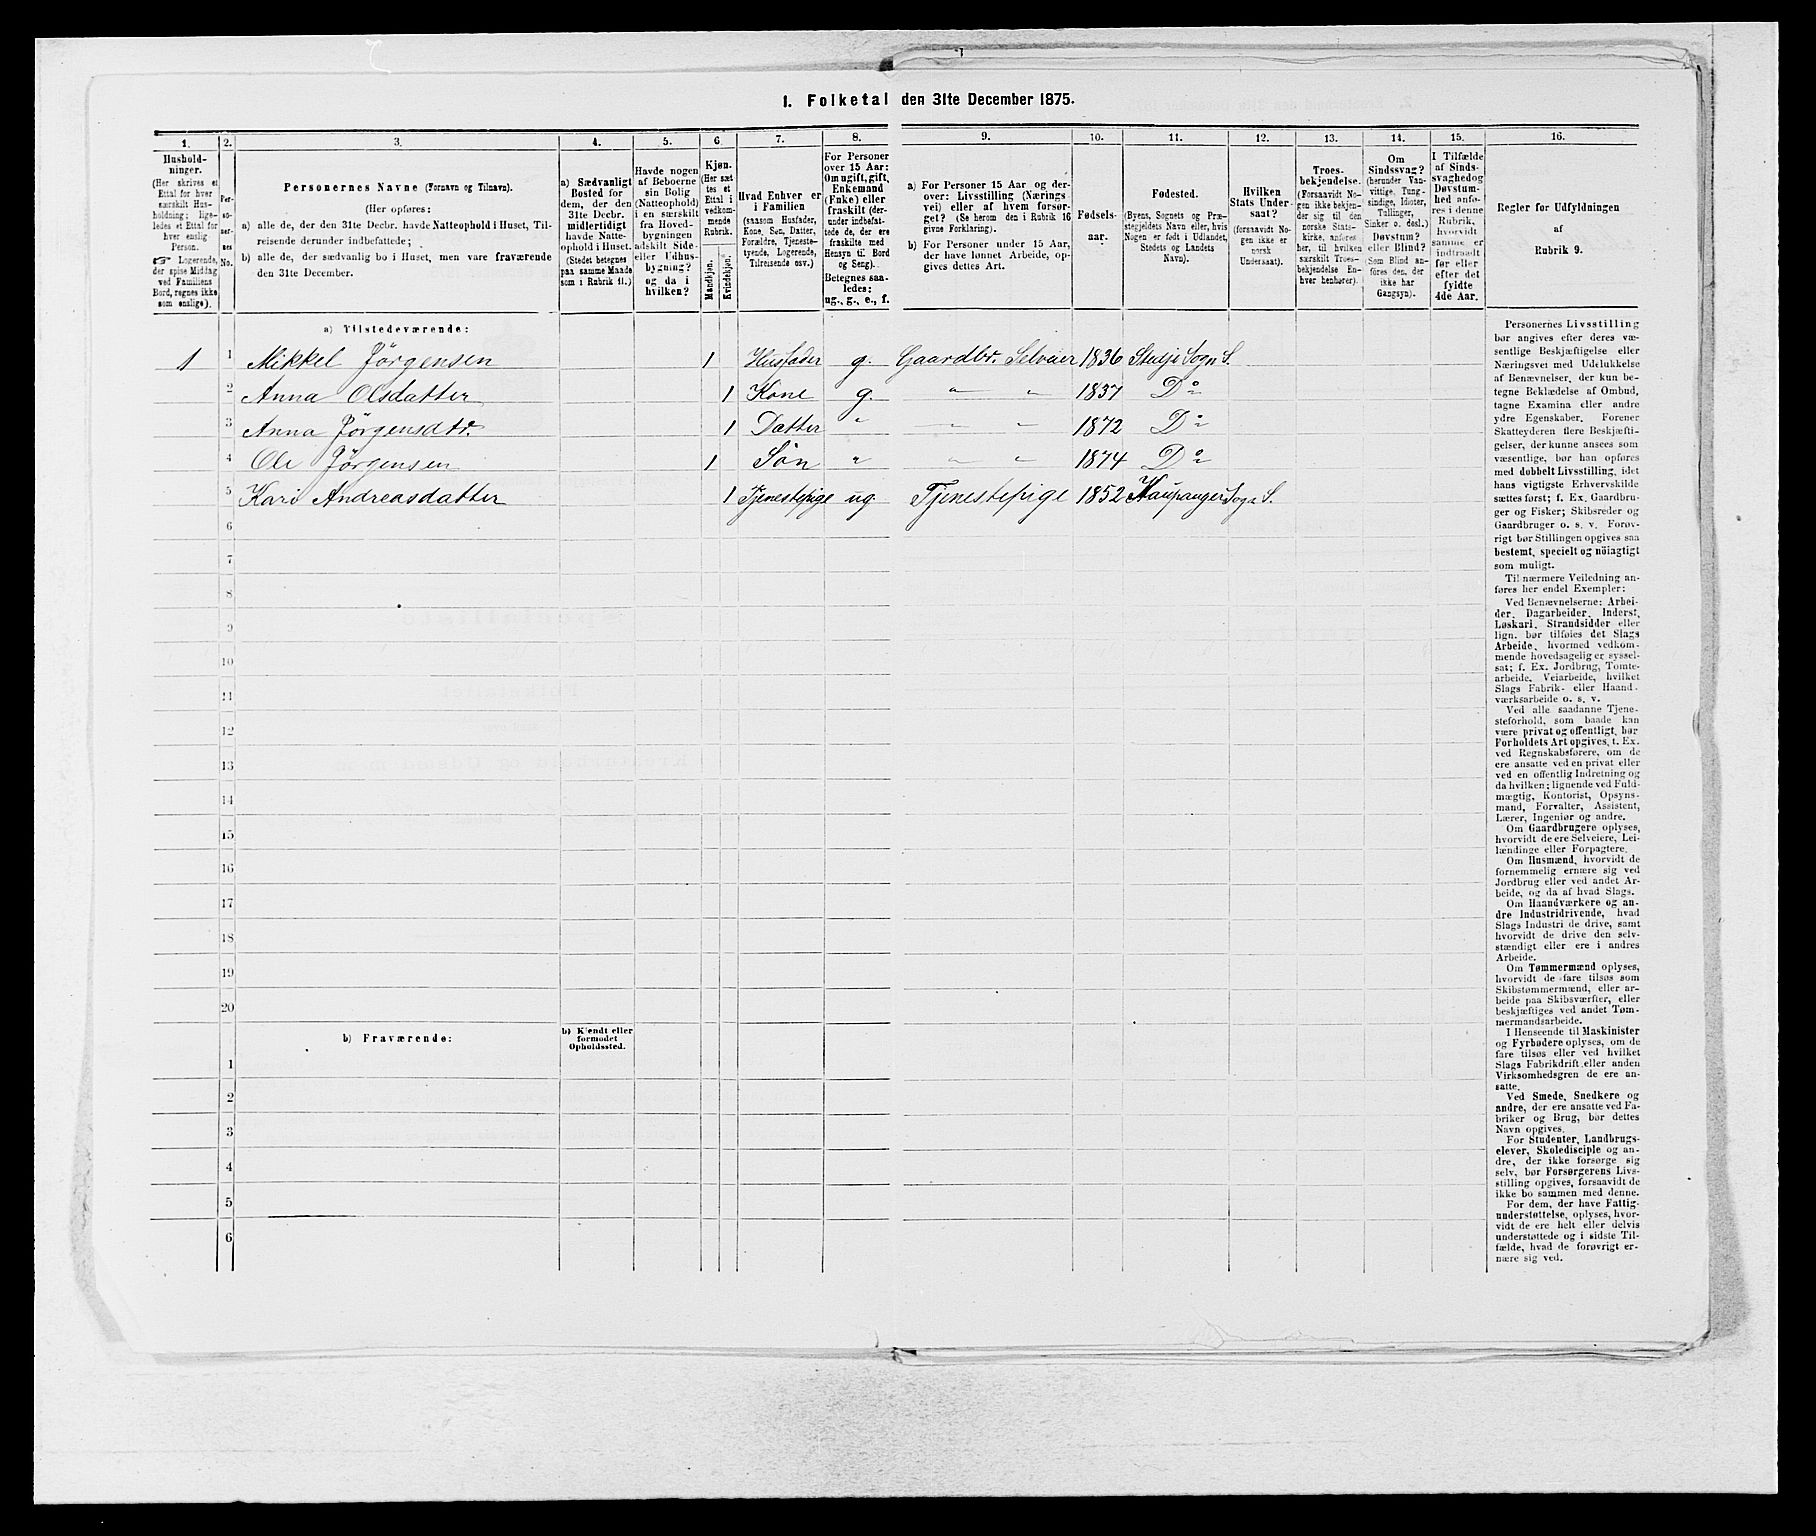 1. Folketal den 31te December 1875.
1. 2. 3. 4. 5. 6. 7. 8. 9. 10. 11. 12. 13. 14. 15. 16.
Hushold-
ninger.
(Her skrives et
Ettal for hver
særskilt Hus-
holdning; lige-
ledes et Ettal for
hver enslig
Person.
☞ Logerende,
der spise Middag
ved Familiens
Bord, regnes ikke
som enslige).
Per-
so-
ner-
nes
No.
Personernes Navne (Fornavn og Tilnavn).
(Her opføres:
a) alle de, der den 31te Decbr. havde Natteophold i Huset, Til-
reisende derunder indbefattede;
b) alle de, der sædvanlig bo i Huset, men vare fraværende
den 31te December.
a) Sædvanligt
Bosted for
dem, der den
31te Decbr.
midlertidigt
havde Natte-
ophold i Huset.
(Stedet betegnes
paa samme Maade
som i Rubrik 11.)
Havde nogen
af Beboerne
sin Bolig
(Natteophold)
i en særskilt
fra Hoved-
bygningen
adskilt Side-
eller Udhus-
bygning?
og da i
hvilken?
Kjøn.
(Her sæt
tes et
Ettal i
vedkom-
mende
Rubrik.
Mandkjøn.
Kvindekjøn.
Hvad Enhver er
i Familien
(saasom Husfader,
Kone, Søn, Datter,
Forældre, Tjeneste-
tyende, Logerende,
Tilreisende osv.)
For Personer
over 15 Aar:
Om ugift, gift,
Enkemand
(Enke) eller
fraskilt (der-
under indbefat-
tede de, der ere
fraskilte med
Hensyn til Bord
og Seng).
Betegnes saa-
ledes:
ug., g., e., f.
a) For Personer 15 Aar og der-
over: Livsstilling (Nærings-
vei) eller af hvem forsør-
get? (Se herom den i Rubrik 16
givne Forklaring).
b) For Personer under 15 Aar,
der have lønnet Arbeide, op-
gives dettes Art.
Fødsels-
aar.
Fødested.
(Byens, Sognets og Præ-
stegjeldets Navn eller, hvis
Nogen er født i Udlandet,
Stedets og Landets
Navn).
Hvilken
Stats Under-
saat?
(forsaavidt No-
gen ikke er
norsk
Undersaat).
Troes-
bekjendelse.
(Forsaavidt No-
gen ikke bekjen-
der sig til den
norske Stats-
kirke, anføres
her, til hvilken
særskilt Troes-
bekjendelse En-
hver henhører).
Om
Sindssvag?
(herunder Van-
vittige, Tung-
sindige, Idioter,
Tullinger,
Sinker o. desl.)
Døvstum?
eller Blind?
(Som Blind an-
føres den, der
ikke har
Gangsyn).
I Tilfælde
af Sinds-
svaghed og
Døvstum-
hed anfø-
res i denne
Rubrik,
hvorvidt
samme er
indtraadt
før eller
efter det
fyldte
4de Aar.
Regler før Udfyldningen
af
Rubrik 9.
a) Tilstedeværende:
1 1 Mikkel Jörgensen 1 Husfader g. Gaardbr. Selveier 1836 Sogn S.
2 Anna Olsdatter 1 Kone g. " " 1837 Do
3 Anna Jörgensdtr. 1 Datter " " " 1872 Do
4 Ole Jörgensen 1 Sön " " " 1874 Do
5 Kari Andreasdatter 1 Tjenestepige ug Tjenestepige 1852 Kaupanger Sogn S.
6
7
8
9
10
11
12
13
14
15
16
17
18
19
20
b) Fraværende:
b) Kjendt eller
formodet
Opholdssted.
1
2
3
4
5
6
Personernes Livsstilling
bør angives efter deres væ-
sentlige Beskjæftigelse eller
Næringsvei med Udelukkelse
af Benævnelser, der kun be-
tegne Beklædelse af Ombud,
tagne Examina eller andre
ydre Egenskaber. Forener
Skatteyderen flere Beskjæfti-
gelser, der kunne ansees som
væsentlige, bør han opføres
med dobbelt Livsstilling, idet
hans vigtigste Erhvervskilde
sættes først; f. Ex. Gaardbru-
ger og Fisker; Skibsreder og
Gaardbruger o. s. v. Forøv-
rigt bør Stillingen opgives saa
bestemt, specielt og nöiagtigt
som muligt.
Til nærmere Veiledning an-
føres her endel Exempler:
Ved Benævnelserne: Arbei-
der, Dagarbeider, Inderst,
Løskari, Strandsidder eller
lign. bør tilføies det Slags
Arbeide, hvormed vedkom-
mende hovedsagelig er syssel-
sat; f. Ex. Jordbrug, Tomte-
arbeide, Veiarbeide, hvilket
Slags Fabrik- eller Haand-
værksarbeide o. s. v.
Ved alle saadanne Tjene-
steforhold, som baade kan
være privat og offentligt, bør
Forholdets Art opgives, t. Ex.
ved Regnskabsførere, om de
ere ansatte ved en privat eller
ved en offentlig Indretning og
da hvilken; lignende ved Fuld-
mægtig, Kontorist, Opsyns-
mand, Forvalter, Assistent,
Lærer, Ingeniør og andre.
Om Gaardbrugere oplyses,
hvorvidt de ere Selveiere, Lei-
lændinge eller Forpagtere.
Om Husmænd, hvorvidt de
fornemmelig ernære sig ved
Jordbrug eller ved andet Ar-
beide, og da af hvad Slags.
Om Haandværkere og an-
dre Industridrivende, hvad
Slags Industri de drive, samt
hvorvidt de drive den selv-
stændigt eller ere i andres
Arbeide.
Om Tømmermænd oplyses,
hvorvidt de fare tilsøs som
Skibstømmermænd, eller ar-
beide paa Skibsværfter, eller
beskjæftiges ved andet Tøm-
mermandsarbeide.
I Henseende til Maskinister
og Fyrbødere oplyses, om de
fare tilsøs eller ved hvilket
Slags Fabrikdrift eller anden
Virksomhedsgren de ere an-
satte.
Ved Smede, Snedkere og
andre, der ere ansatte ved Fa-
briker og Brug, bør dettes
Navn opgives.
For Studenter, Landbrugs-
elever, Skoledisciple og an-
dre, der ikke forsørge sig
selv, bør Forsørgerens Livs-
stilling opgives, forsaavidt de
ikke bo sammen med denne.
For dem, der have Fattig-
understøttelse, oplyses, hvor-
vidt de ere helt eller delvis
understøttede og i sidste Til-
fælde, hvad de forøvrigt er-
nære sig ved.